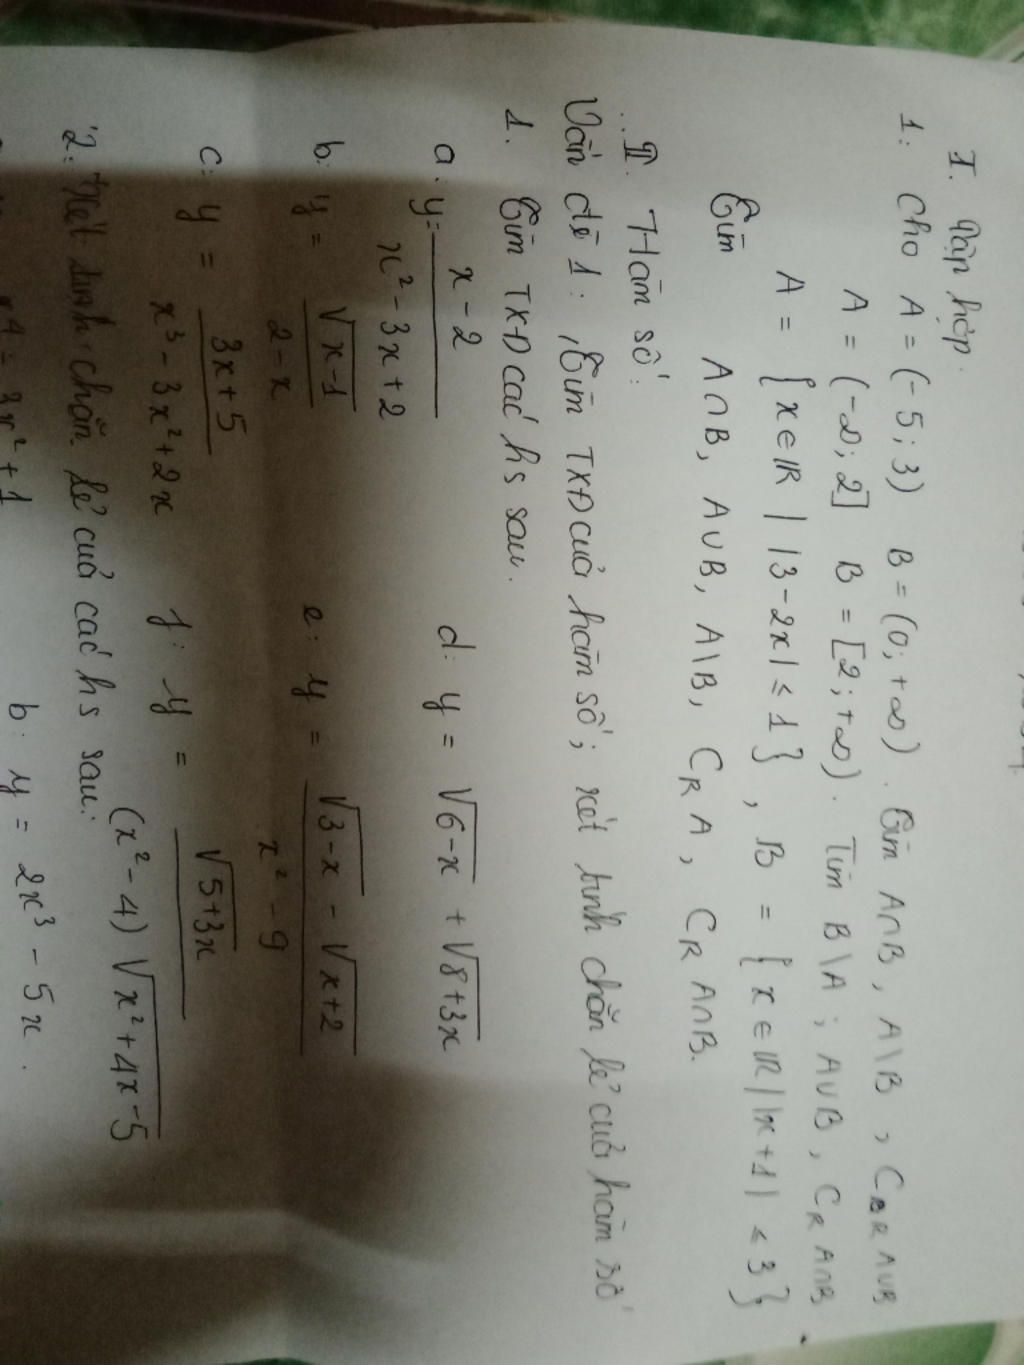 I. Tập hợp.
1: Cho A = (-5; 3) B = (0; +∞). Tìm A∩B, A\B, C_R A∪B
A = (-∞; 2] B = [2; +∞). Tìm B\A; A∪B, C_R A∩B
A = {x ∈ ℝ | |3-2x| ≤ 1}, B = {x ∈ ℝ | |x+1| ≤ 3}
Tìm A∩B, A∪B, A\B, C_R A, C_R A∩B.
II. Hàm số:
Vấn đề 1: Tìm TXĐ của hàm số; xét tính chẵn lẻ của hàm số
1. Tìm TXĐ các hs sau.
a. y = (x-2)/(x²-3x+2) d: y = √(6-x) + √(8+3x)
b: y = √(x-1)/(2-x) e: y = (√(3-x) - √(x+2))/(x²-9)
c: y = (3x+5)/(x³-3x²+2x) f: y = √(5+3x)/((x²-4)√(x²+4x-5))
2: Xét tính chẵn lẻ của các hs sau:
3x² + 1 b: y = 2x³ - 5x.